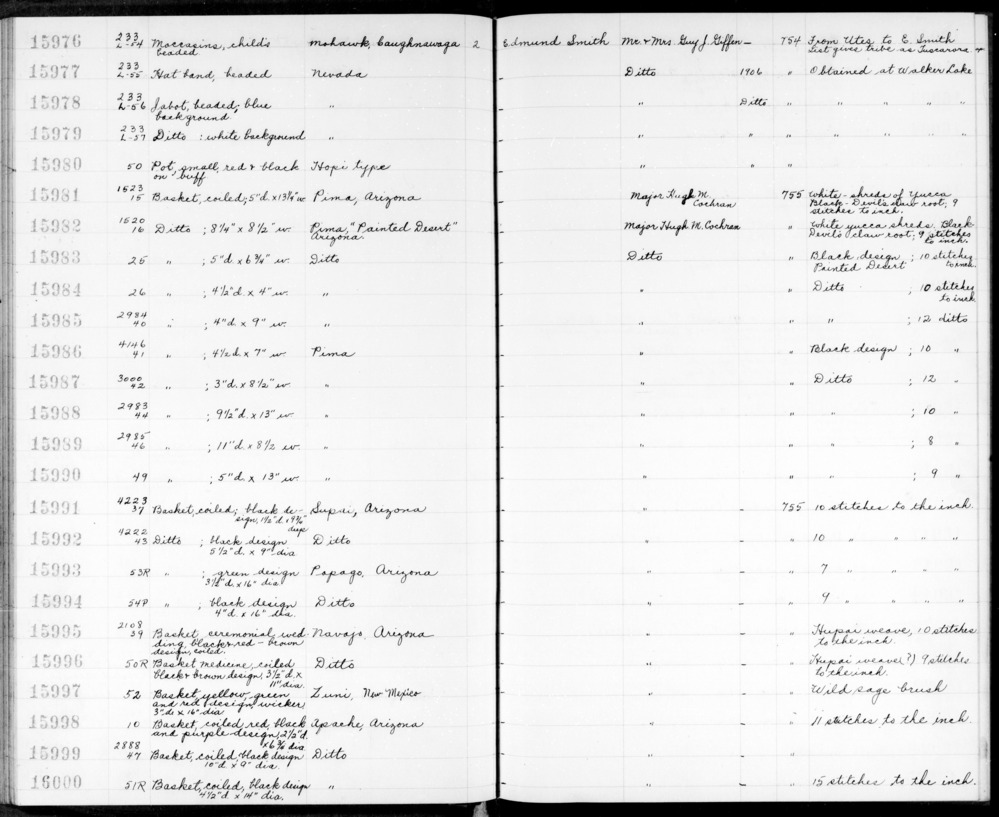 15976 233 L-54 Moccasins, child's beaded Mohawk, Caughnawaga 2 Edmund Smith Mr. & Mrs. Guy J. Giffen – 754 From Utes to E. Smith
List gives tribe as Tuscarora
15977 233 L-55 Hat band, beaded Nevada Ditto 1906 " Obtained at Walker Lake
15978 233 L-56 Jabot, beaded; blue background " " Ditto " " " " "
15979 233 L-57 Ditto : white background " " " " " " " "
15980 50 Pot, small, red & black on buff Hopi type " " "
15981 1523 15 Basket, coiled; 5"d. x 13¼" w Pima, Arizona Major Hugh M. Cochran 755 White - shreds of yucca
Black - Devil's claw root; 9
stitches to inch.
15982 1520 16 Ditto ; 8¼" x 8½" w. Pima, "Painted Desert" Arizona. Major Hugh M. Cochran " White yucca shreds. Black
Devil's claw root; 9 stitches
to inch.
15983 25 " ; 5"d x 6¾" w. Ditto Ditto – " Black design ; 10 stitches
Painted Desert to inch.
15984 26 " ; 4½"d. x 4" w. " " – " Ditto ; 10 stitches
to inch
15985 2984 40 " ; 4"d. x 9" w. " " – " " ; 12 ditto
15986 4146 41 " ; 4½d. x 7" w. Pima " – " Black design ; 10 "
15987 3000 42 " ; 3"d. x 8½" w " " – " Ditto ; 12 "
15988 2983 44 " ; 9½"d. x 13" w. " " – " " ; 10 "
15989 2985 46 " ; 11"d. x 8½ w. " " – " " ; 8 "
15990 49 " ; 5"d. x 13" w. " " – " " ; 9 "
15991 4223 37 Basket, coiled; black de- Supai, Arizona " – 755 10 stitches to the inch.
sign, 1½"d. x 9¾"
15992 4222 43 Ditto ; black design Ditto " – " 10 " " "
5½"d. x 9" dia
15993 53R " ; green design Papago, Arizona " – " 7 " " "
3½"d. x 16" dia
15994 54P " ; black design Ditto " – " 9 " " "
4"d. x 16" dia.
15995 2108 39 Basket, ceremonial, wed- Navajo, Arizona " – " Hupai weave, 10 stitches
ding, black & red-brown to the inch.
design, coiled.
15996 50R Basket medicine, coiled Ditto " – " Hupai weave(?) 9 stitches
black & brown design, 3½"d. x to the inch.
11" dia.
15997 52 Basket, yellow, green Zuni, New Mexico " – " Wild sage brush
and red design, wicker
3"d. x 16" dia
15998 10 Basket, coiled red, black Apache, Arizona " – " 11 stitches to the inch.
and purple design, 2½"d.
x 6¾ dia
15999 2888 47 Basket, coiled, black design Ditto " – "
10"d. x 9" dia.
16000 51R Basket, coiled, black design " " – " 15 stitches to the inch.
4½"d. x 14" dia.